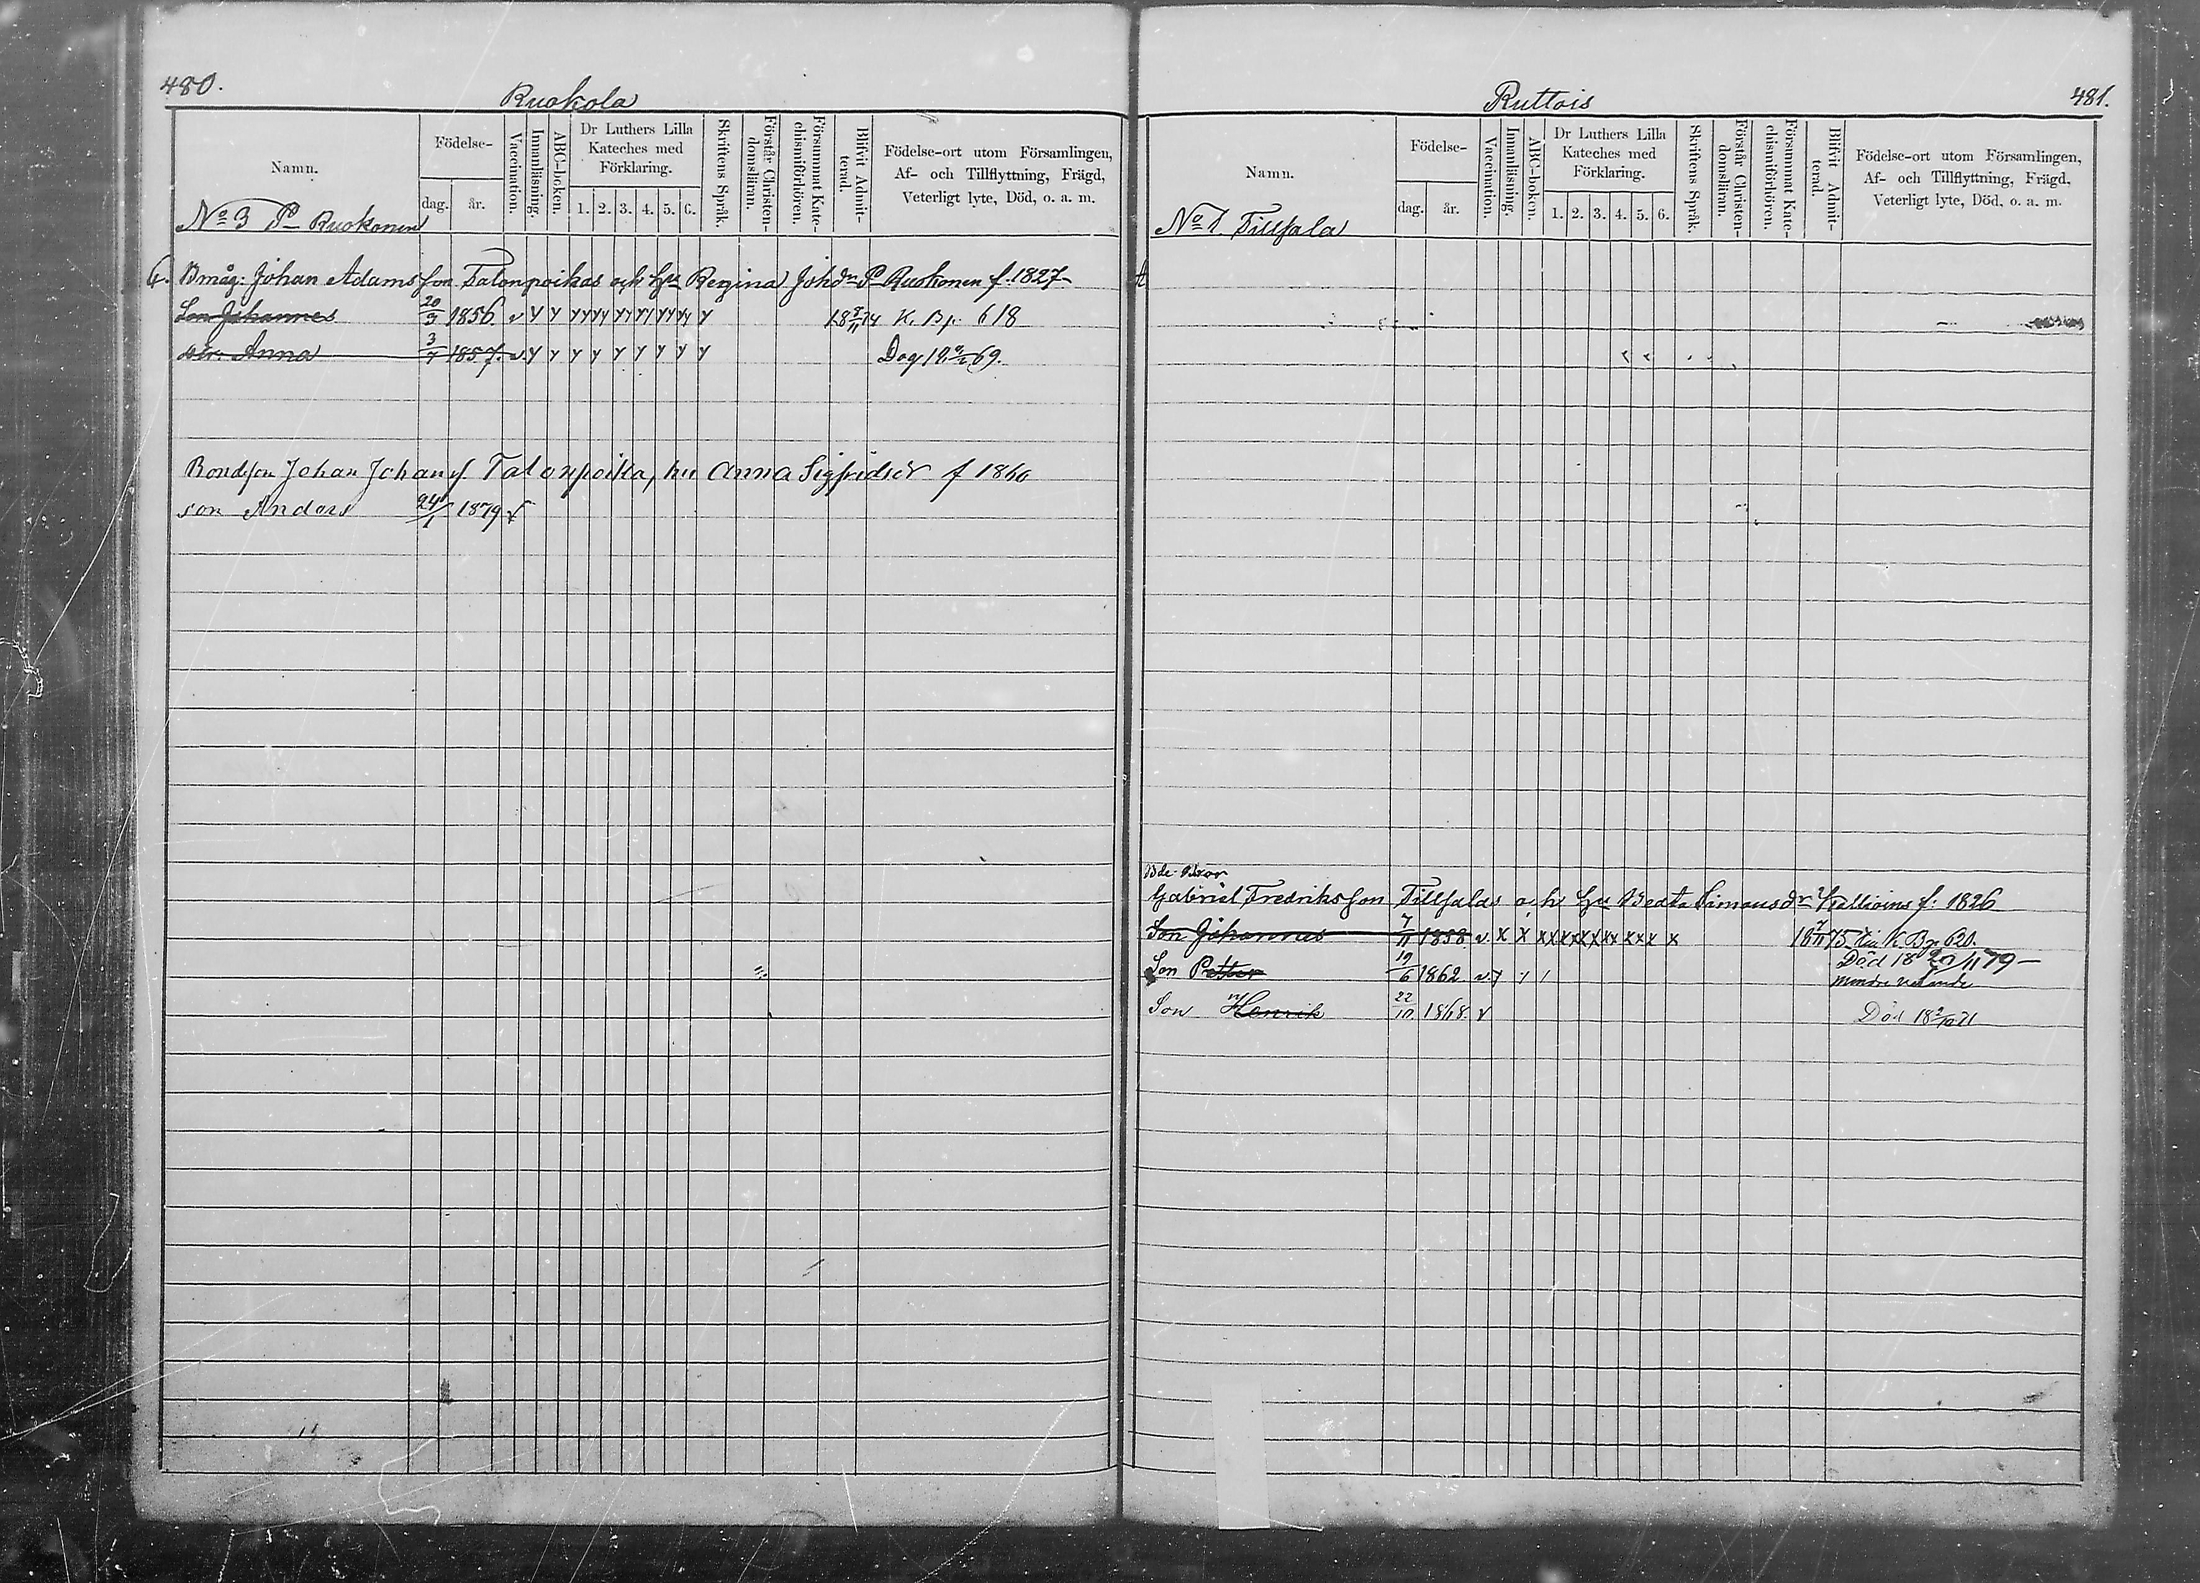 480.
Ruokola
Namn.
Födelse-
dag.
år.
Vaccination.
Innanläsning.
ABC-boken.
Dr Luthers Lilla
Kateches med
Förklaring.
1. 2. 3. 4. 5. 6.
Skriftens Språk.
Förstår Christen-
domsläran.
Försummat Kate-
chismiförhören.
Blifvit Admit-
terad.
Födelse-ort utom Församlingen,
Af- och Tillflyttning, Frägd,
Veterligt lyte, Död, o. a. m.
No 3 Ruokonen
Bmåg: Johan Adamsson Talonpoikas och hu Regina Johdr Ruokonen f. 1827
Son Johannes 20/3 1856 v K. B p. 618
Anna 3/7 1857. v. 69.
Bondeson Johan Johans Talonpoika, hu Anna Sigfridsdr f 1860
son Anders 24/1 1879 v
Ruttois
481.
Namn.
Födelse-
dag.
år.
Vaccination.
Innanläsning.
ABC-boken.
Dr Luthers Lilla
Kateches med
Förklaring.
1. 2. 3. 4. 5. 6.
Skriftens Språk.
Förstår Christen-
domsläran.
Försummat Kate-
chismiförhören.
Blifvit Admit-
terad.
Födelse-ort utom Församlingen,
Af- och Tillflyttning, Frägd,
Veterligt lyte, Död, o. a. m.
No 1. Tillsala
Bde. Bror
Gabriel Fredriksson Tillsalas och hu Beata Simonsdr f: 1826
Son Johannes 7/11 1858 v. x x x x x x x x x x x K. B p
Son Petter 19/6 1862 v. Död 18 20/11 79
mindre vetande
Son Henrik 22/10 1868 v Död 18 2/10 71